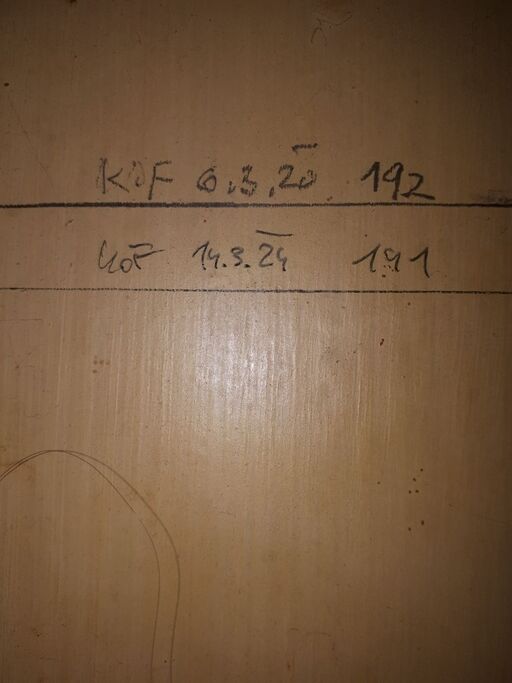 KOF 6.3.20 192
KOF 14.3.24 191